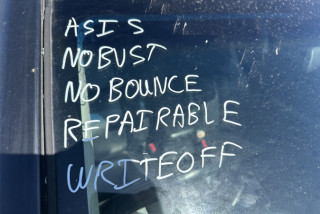 AS IS
NO BUST
NO BOUNCE
REPAIRABLE
WRITEOFF